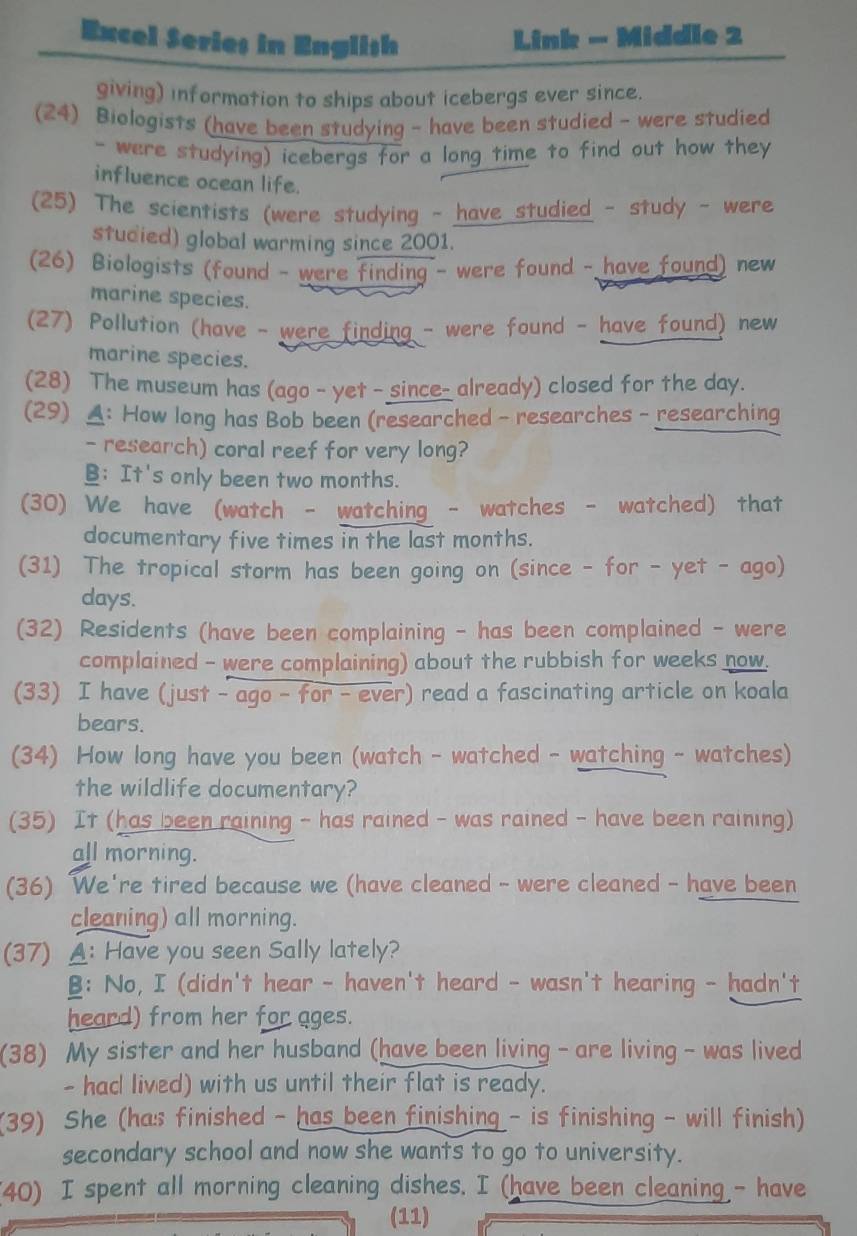 Excel Series in English Link - Middle 2
giving) information to ships about icebergs ever since.
(24) Biologists (have been studying - have been studied - were studied
- were studying) icebergs for a long time to find out how they
influence ocean life.
(25) The scientists (were studying - have studied - study - were
studied) global warming since 2001.
(26) Biologists (found - were finding - were found - have found) new
marine species.
(27) Pollution (have - were finding - were found - have found) new
marine species.
(28) The museum has (ago - yet - since- already) closed for the day.
(29) A: How long has Bob been (researched - researches - researching
- research) coral reef for very long?
B: It's only been two months.
(30) We have (watch - watching - watches - watched) that
documentary five times in the last months.
(31) The tropical storm has been going on (since - for - yet - ago)
days.
(32) Residents (have been complaining - has been complained - were
complained - were complaining) about the rubbish for weeks now.
(33) I have (just - ago - for - ever) read a fascinating article on koala
bears.
(34) How long have you been (watch - watched - watching - watches)
the wildlife documentary?
(35) It (has been raining - has rained - was rained - have been raining)
all morning.
(36) We're tired because we (have cleaned - were cleaned - have been
cleaning) all morning.
(37) A: Have you seen Sally lately?
B: No, I (didn't hear - haven't heard - wasn't hearing - hadn't
heard) from her for ages.
(38) My sister and her husband (have been living - are living - was lived
- had lived) with us until their flat is ready.
(39) She (has finished - has been finishing - is finishing - will finish)
secondary school and now she wants to go to university.
(40) I spent all morning cleaning dishes. I (have been cleaning - have
(11)